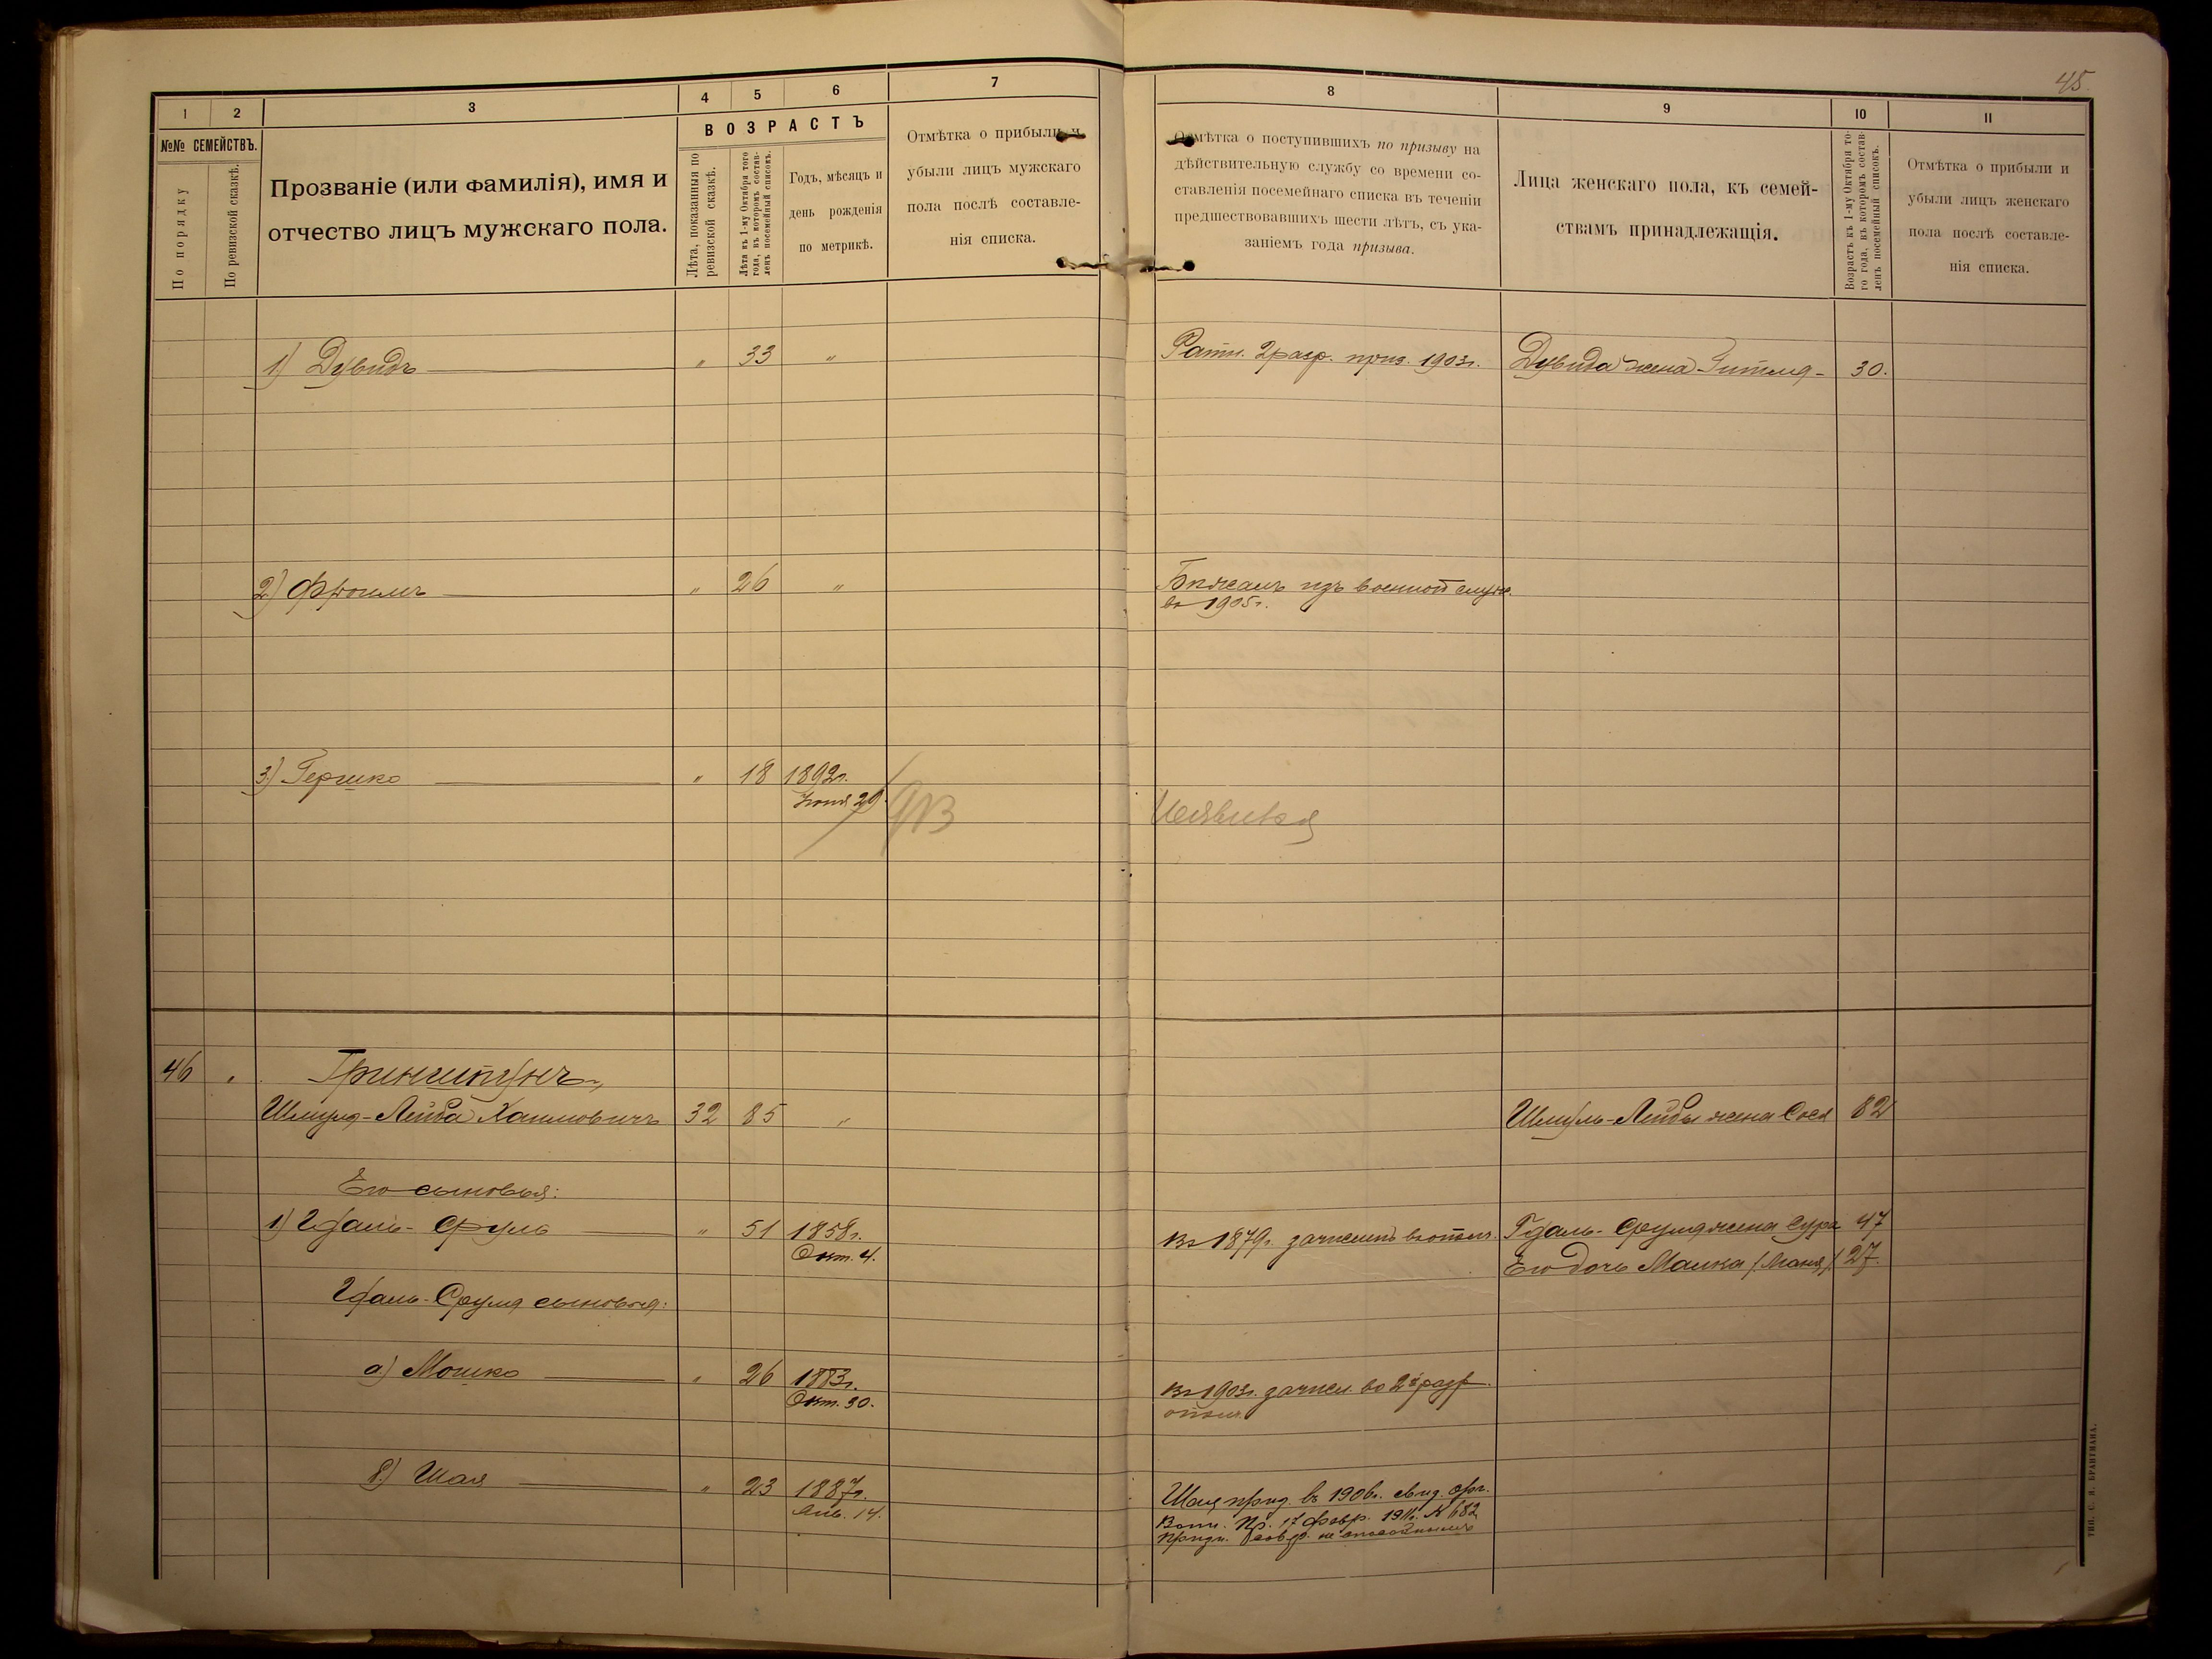 45.
1 2 3 4 5 6 7 8 9 10 11
№№ СЕМЕЙСТВЪ.
По порядку
По ревизской сказкѣ.
Прозваніе (или фамилія), имя и
отчество лицъ мужскаго пола.
ВОЗРАСТЪ
Лѣта, показанныя по
ревизской сказкѣ.
Лѣта къ 1-му Октября того
года, въ которомъ состав-
ленъ посемейный списокъ.
Годъ, мѣсяцъ и
день рожденія
по метрикѣ.
Отмѣтка о прибыли и
убыли лицъ мужскаго
пола послѣ составле-
нія списка.
Отмѣтка о поступившихъ по призыву на
дѣйствительную службу со времени со-
ставленія посемейнаго списка въ теченіи
предшествовавшихъ шести лѣтъ, съ ука-
заніемъ года призыва.
Лица женскаго пола, къ семей-
ствамъ принадлежащія.
Возрастъ къ 1-му Октября то-
го года, въ которомъ состав-
ленъ посемейный списокъ.
Отмѣтка о прибыли и
убыли лицъ женскаго
пола послѣ составле-
нія списка.
1) Дувидъ — " 33 " Ратн. 2 разр. приз. 1903г. Дувида жена Гитля - 30.
2) Фроимъ — " 26 " Бѣжалъ изъ военной служ.
въ 1905г.
3) Гершко — " 18 1892г.
Іюня 29. 913 Неявился
46 " Гринштунъ,
Шмуля-Лейба Хаимовичъ 32 85 " Шмуль-Лейбы жена Сося 82
Его сыновья:
1) Гдаль-Сруль — " 51 1858г. Въ 1879г. зачисленъ въ ополч. Гдаль-Сруля жена Сура 47
Окт. 4. Его дочь Малка (Маня) 27.
Гдаль-Сруля сыновья:
а) Мошко — " 26 1883г. Въ 1903г. зачисл. во 2й разр.
Окт. 30. ополч.
б) Шая — " 23 1887г. Шая приз. въ 1906г.
Янв. 14. 17 февр. 1911г. № 682
неспособнымъ
ТИП. С. И. БРАНТМАНА.